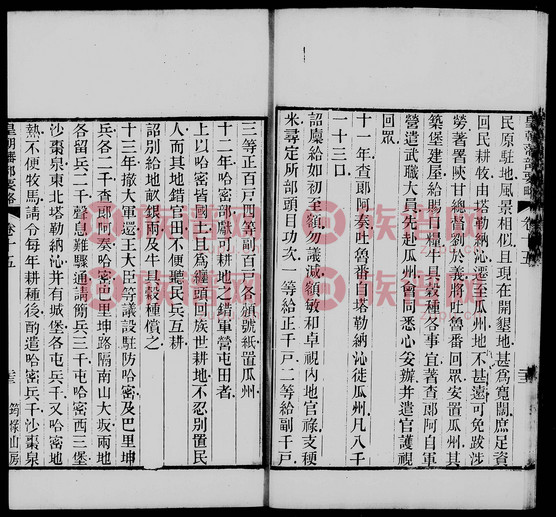 皇朝藩部要略 卷十五
民原駐地風景相似且現在開墾地甚為寬闊庶足資
回民耕牧由塔勒納沁遷至瓜州地不甚遠可免跋涉
勞著署陝甘總督劉於義將吐魯番回眾安置瓜州其
築堡建屋給賜口糧牛具穀種各事宜著查郎阿自軍
營遣武職大員先赴瓜州會同悉心妥辦并遣官護視
回眾
十一年查郎阿奏吐魯番自塔勒納沁徙瓜州凡八千
一十三口
詔廩給如初至額勿議減額敏和卓視內地官祿支粳
米尋定所部頭目功次一等給正千戶二等給副千戶
三等正百戶四等副百戶各頒號紙置瓜州
十二年哈密部獻可耕地之錯軍營屯田者
上以哈密皆國土且為纏頭回族世耕地不忍別置民
人而其地錯官田不便聽民兵互耕
詔別給地畝銀兩及牛具穀種償之
十三年撤大軍還王大臣等議設駐防哈密及巴里坤
兵各二千查郎阿奏哈密巴里坤路隔南山大坂兩地
各留兵二千聲息難驟通請簡兵三千屯哈密西三堡
沙棗泉東北塔勒納沁并有城堡各屯兵千又哈密地
熱不便牧馬請分每年耕種後酌遣哈密兵千沙棗泉
皇朝藩部要略 卷十五
筠淥山房